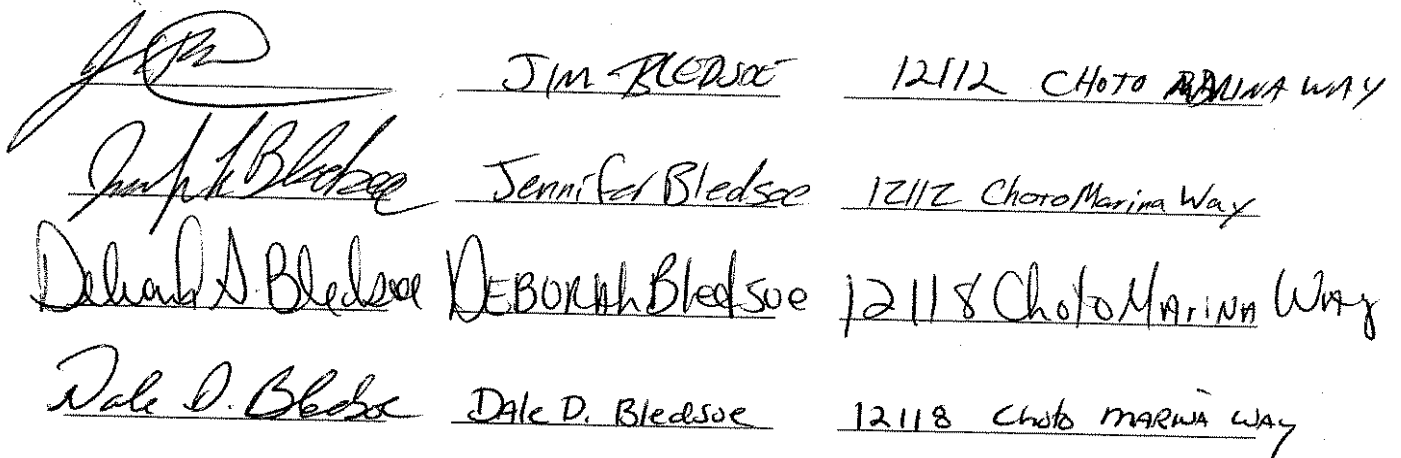 JIM BLEDSOE 12112 CHOTO MARINA WAY
Jennifer Bledsoe Jennifer Bledsoe 12112 Choto Marina Way
Deborah S. Bledsoe DEBORAh Bledsoe 12118 Choto MArinA WAy
Dale D. Bledsoe DAle D. Bledsoe 12118 Choto MARINA WAy